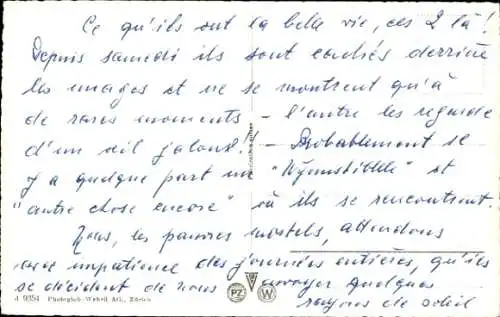 Ce qu'ils ont la belle vie, ces 2 là !
Depuis samedi ils sont cachés derrière
les nuages et ne se montrent qu'à
de rares moments - l'autre les regarde
d'un œil jaloux !! - Probablement se
y a quelque part un et
"autre chose encore" où ils se rencontrent.
Nous, les pauvres mortels, attendons
avec impatience des journées entières, qu'ils
se décident de nous envoyer quelques
rayons de soleil
d 9354 Photoglob-Wehrli AG., Zürich
PZ W